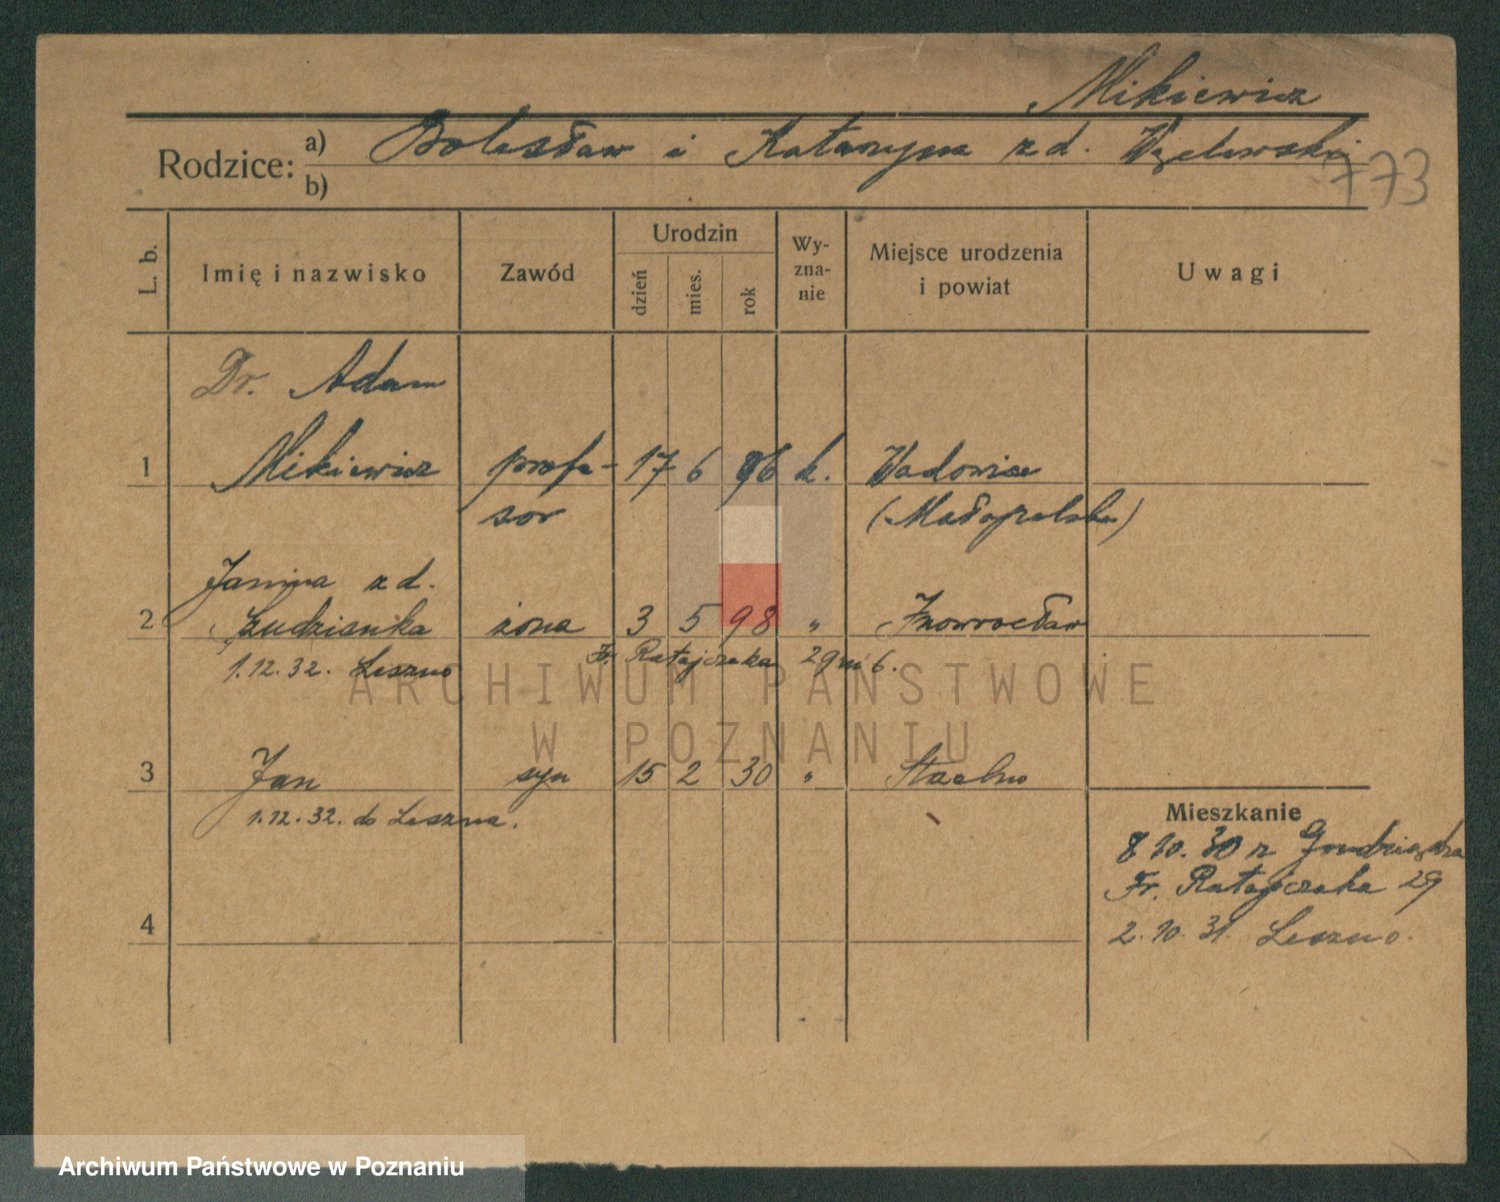 Mikiewicz
Rodzice: a) Bolesław i Katarzyna z d.
b)
773
L. b.
Imię i nazwisko
Zawód
Urodzin
dzień
mies.
rok
Wy-
zna-
nie
Miejsce urodzenia
i powiat
Uwagi
Dr. Adam
1 Mikiewicz profe- 17 6 96 k. Wadowice
sor (Małopolska)
Janina z d.
2 żona 3 5 98 " Inowrocław
1.12.32. Leszno Fr. Ratajczaka 29 m 6.
3 Jan syn 15 2 30 "
1.12.32. do Leszna.
Mieszkanie
8 10.30 z Grudziądza
Fr. Ratajczaka 29
2.10.31 Leszno.
4
ARCHIWUM PAŃSTWOWE
W POZNANIU
Archiwum Państwowe w Poznaniu